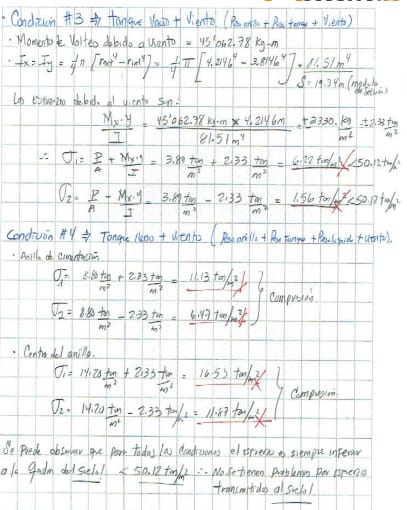 • Condición #3 ⇒ Tanque Vacío + Viento. (Peso anillo + Peso tanque + Viento)
• Momento de Volteo debido a viento = 45'062.78 Kg-m
• Ix = Iy = 1/4 π [rext⁴ - rint⁴] = 1/4 π [4.2146⁴ - 3.8146⁴] = 81.51 m⁴
S = 19.34 m³ (modulo de sección)
Los esfuerzos debido al viento son:
Mx·y / I = 45'062.78 kg-m × 4.2146m / 81.51 m⁴ = ±2330. kg/m² = ±2.33 ton/m²
∴ σ1 = P/A + Mx·y/I = 3.89 ton/m² + 2.33 ton/m² = 6.22 ton/m² < 50.12 ton/m²
σ2 = P/A - Mx·y/I = 3.89 ton/m² - 2.33 ton/m² = 1.56 ton/m² < 50.12 ton/m²
Condición #4 ⇒ Tanque lleno + viento (Peso anillo + Peso Tanque + Peso líquido + viento).
• Anillo de cimentación
σ1 = 8.80 ton/m² + 2.33 ton/m² = 11.13 ton/m²
σ2 = 8.80 ton/m² - 2.33 ton/m² = 6.47 ton/m²
} Compresión.
• Centro del anillo.
σ1 = 14.20 ton/m² + 2.33 ton/m² = 16.53 ton/m²
σ2 = 14.20 ton/m² - 2.33 ton/m² = 11.87 ton/m²
} Compresión.
Se Puede observar que para todas las condiciones el esfuerzo es siempre inferior
a la qadm del suelo! < 50.12 ton/m² ∴ No se tienen problemas por esfuerzo
transmitidos al suelo!